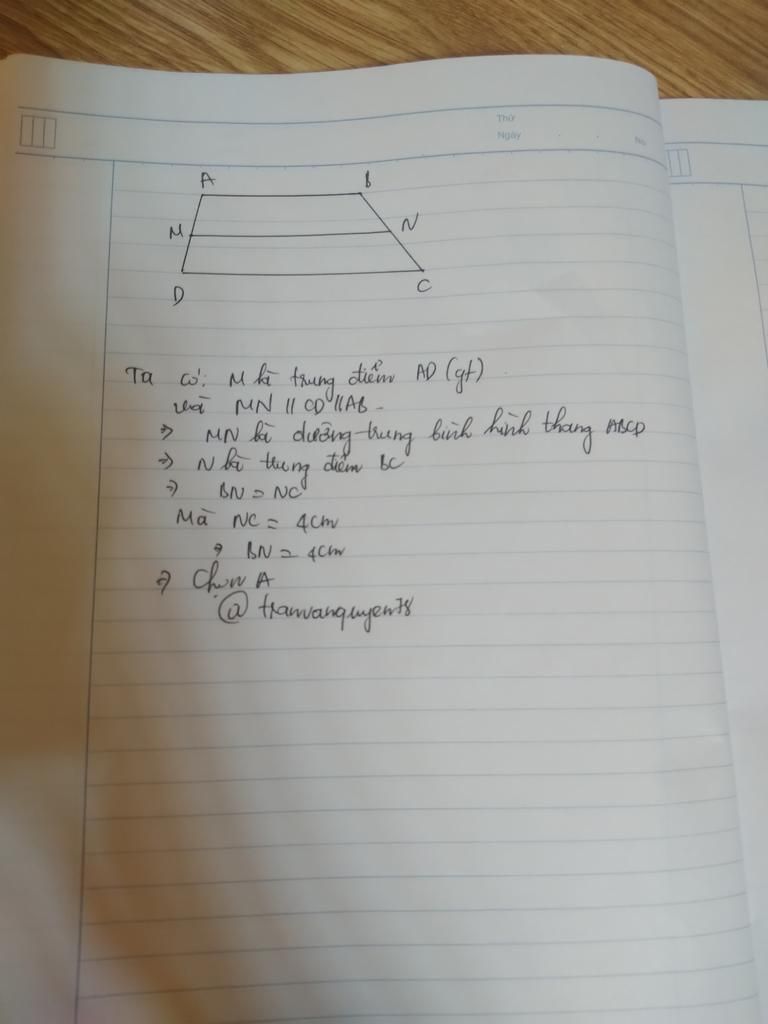 Thứ
Ngày
No
A B
M N
D C
Ta có: M là trung điểm AD (gt)
và MN // CD // AB.
⇒ MN là đường trung bình hình thang ABCD
⇒ N là trung điểm BC
⇒ BN = NC
Mà NC = 4cm
⇒ BN = 4cm
⇒ Chọn A
@ tranvanquyen78